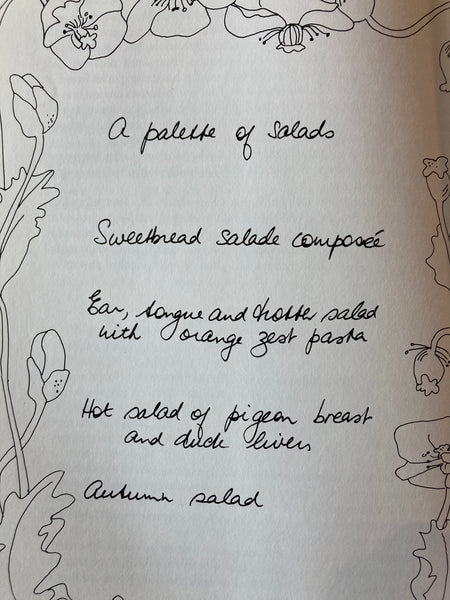 A palette of salads
Sweetbread salade composée
Ear, tongue and trotter salad
with orange zest pasta
Hot salad of pigeon breast
and duck livers
Autumn salad